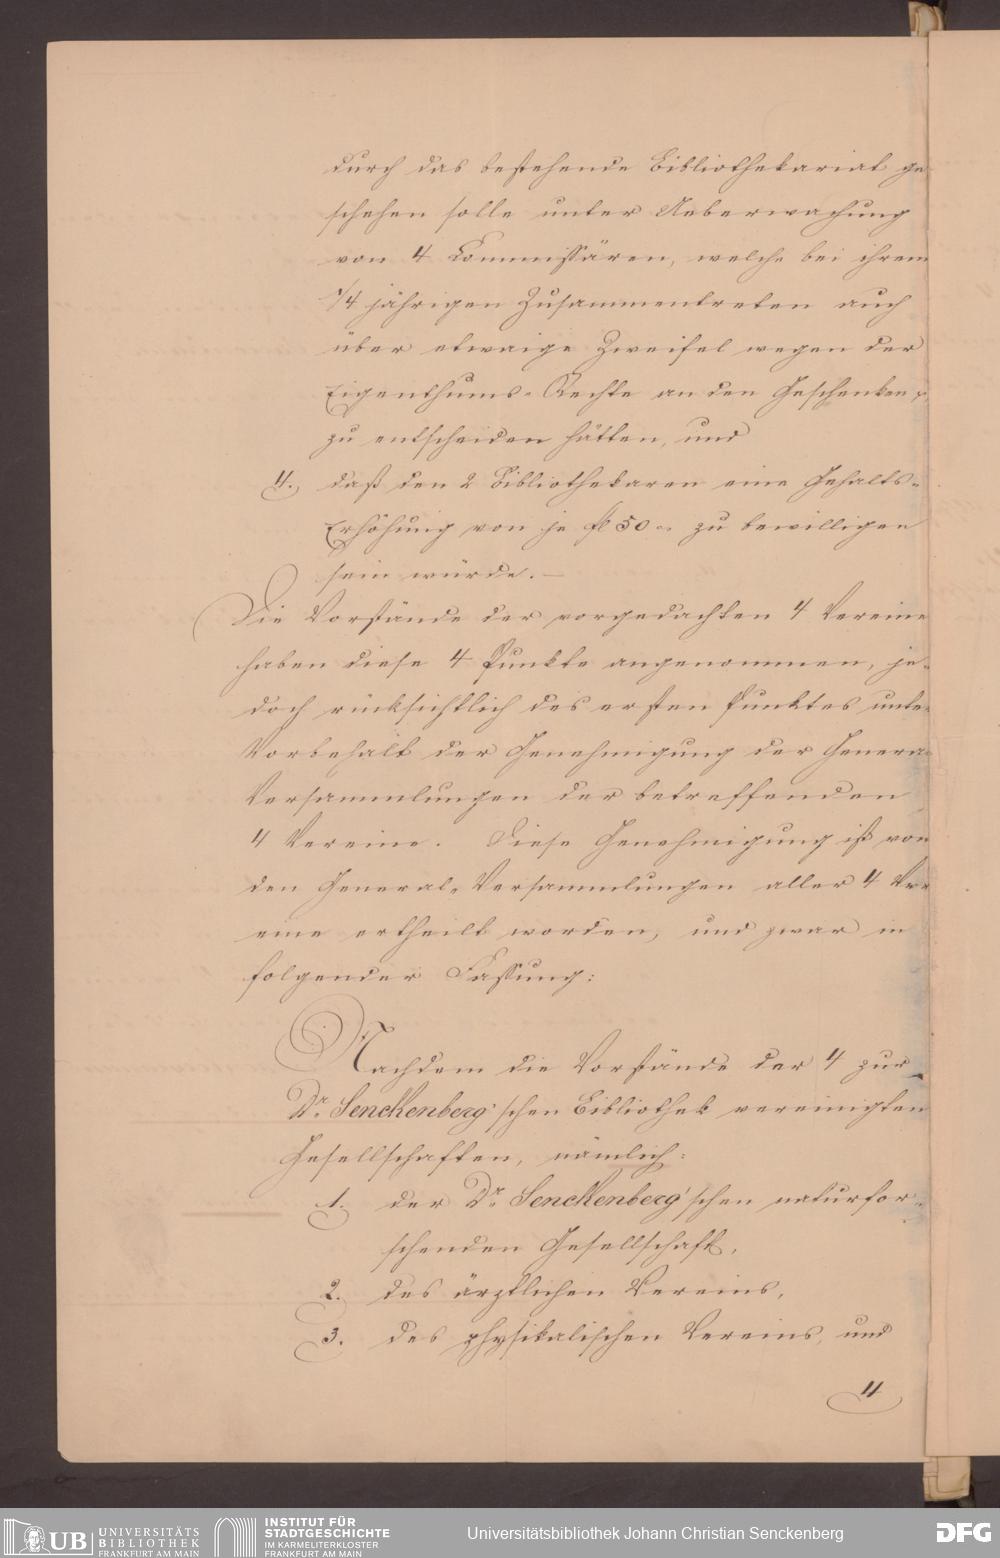 durch das bestehende Bibliothekariat ge
schehen solle unter Ueberwachung
von 4 Commissären, welche bei ihrem
1/4 jährigen Zusammentreten auch
über etwaige Zweifel wegen der
Eigenthums-Rechte an den Geschenken
zu entscheiden hätten, und
4. daß den 2 Bibliothekaren eine Gehalts-
Erhöhung von je fl 50 zu bewilligen
sein würde. —
Die Vorstände der vorgedachten 4 Vereine
haben diese 4 Punkte angenommen, je-
doch rücksichtlich des ersten Punktes unte
Vorbehalt der Genehmigung der Genera
Versammlungen der betreffenden
4 Vereine. Diese Genehmigung ist von
den General-Versammlungen aller 4 Ver
eine ertheilt worden, und zwar in
folgender Fassung:
Nachdem die Vorstände der 4 zur
Dr. Senckenberg'schen Bibliothek vereinigten
Gesellschaften, nämlich:
1. der Dr. Senckenberg'schen naturfor-
schenden Gesellschaft,
2. des ärztlichen Vereins,
3. des physikalischen Vereins, und
4
UB UNIVERSITÄTS
BIBLIOTHEK
FRANKFURT AM MAIN
INSTITUT FÜR
STADTGESCHICHTE
IM KARMELITERKLOSTER
FRANKFURT AM MAIN
Universitätsbibliothek Johann Christian Senckenberg
DFG